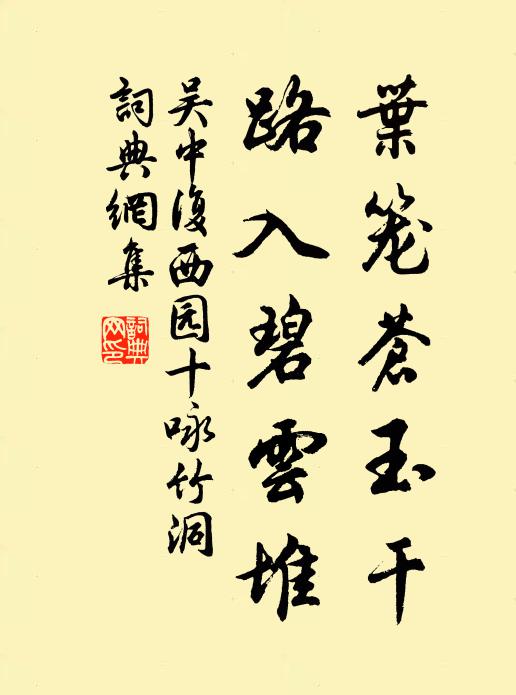 葉笼蒼玉干
路入碧雲堆
吴中復西园十咏竹洞
詞典網集
詞典网印